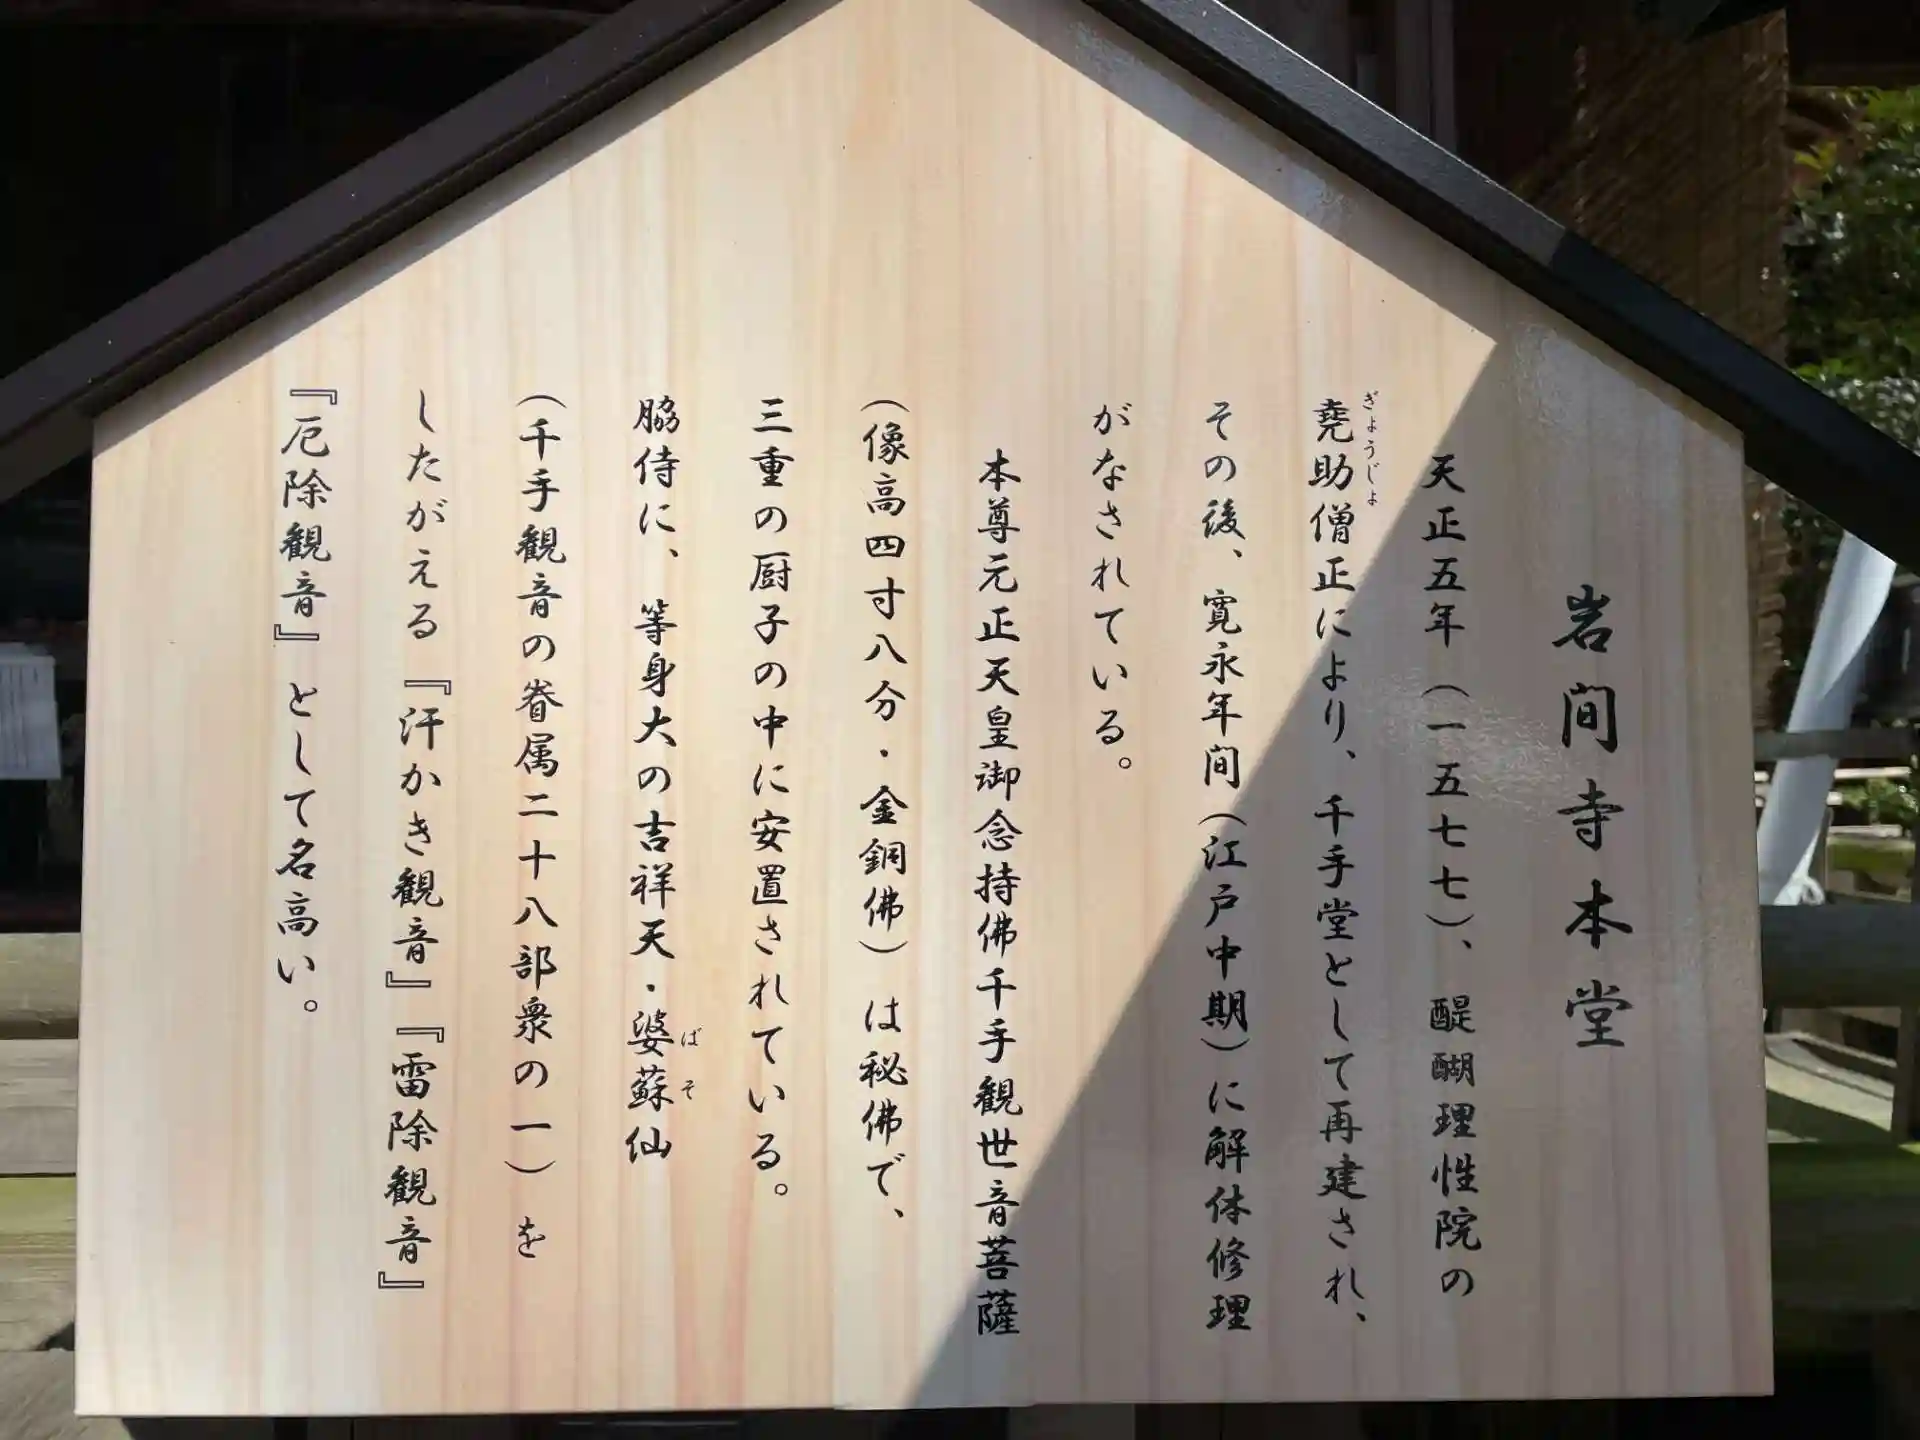 岩間寺本堂
天正五年（一五七七）、醍醐理性院の
堯助僧正により、千手堂として再建され、
ぎょうじょ
その後、寛永年間（江戸中期）に解体修理
がなされている。
本尊元正天皇御念持佛千手観世音菩薩
（像高四寸八分・金銅佛）は秘佛で、
三重の厨子の中に安置されている。
脇侍に、等身大の吉祥天・婆蘇仙
ばそ
（千手観音の眷属二十八部衆の一）を
したがえる『汗かき観音』『雷除観音』
『厄除観音』として名高い。